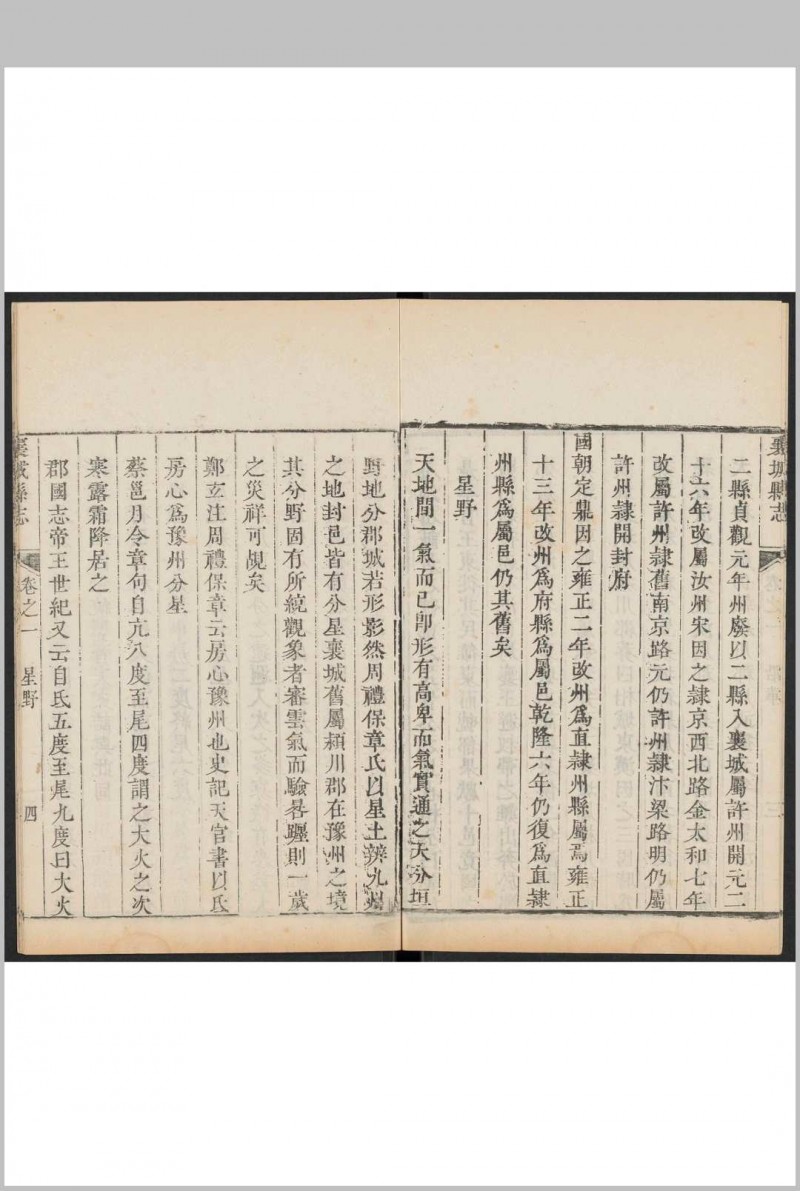 襄城縣志
二縣貞觀元年州廢以二縣入襄城屬許州開元二
十六年改屬汝州宋因之隸京西北路金太和七年
改屬許州隸舊南京路元仍許州隸汴梁路明仍屬
許州隸開封府
國朝定鼎因之雍正二年改州爲直隸州縣屬焉雍正
十三年改州爲府縣爲屬邑乾隆六年仍復爲直隸
州縣爲屬邑仍其舊矣
星野
天地間一氣而已卽形有高卑而氣實通之天分垣
野地分郡城若形影然周禮保章氏以星土辨九州
之地封邑皆有分星襄城舊屬潁川郡在豫州之境
其分野固有所統觀象者審雲氣而驗晷躔則一歲
之災祥可覘矣
鄭玄注周禮保章云房心豫州也史記天官書以氐
房心爲豫州分星
蔡邕月令章句自亢八度至尾四度謂之大火之次
寒露霜降居之
郡國志帝王世紀又云自氐五度至尾九度曰大火
襄城縣志
卷之一
星野
四